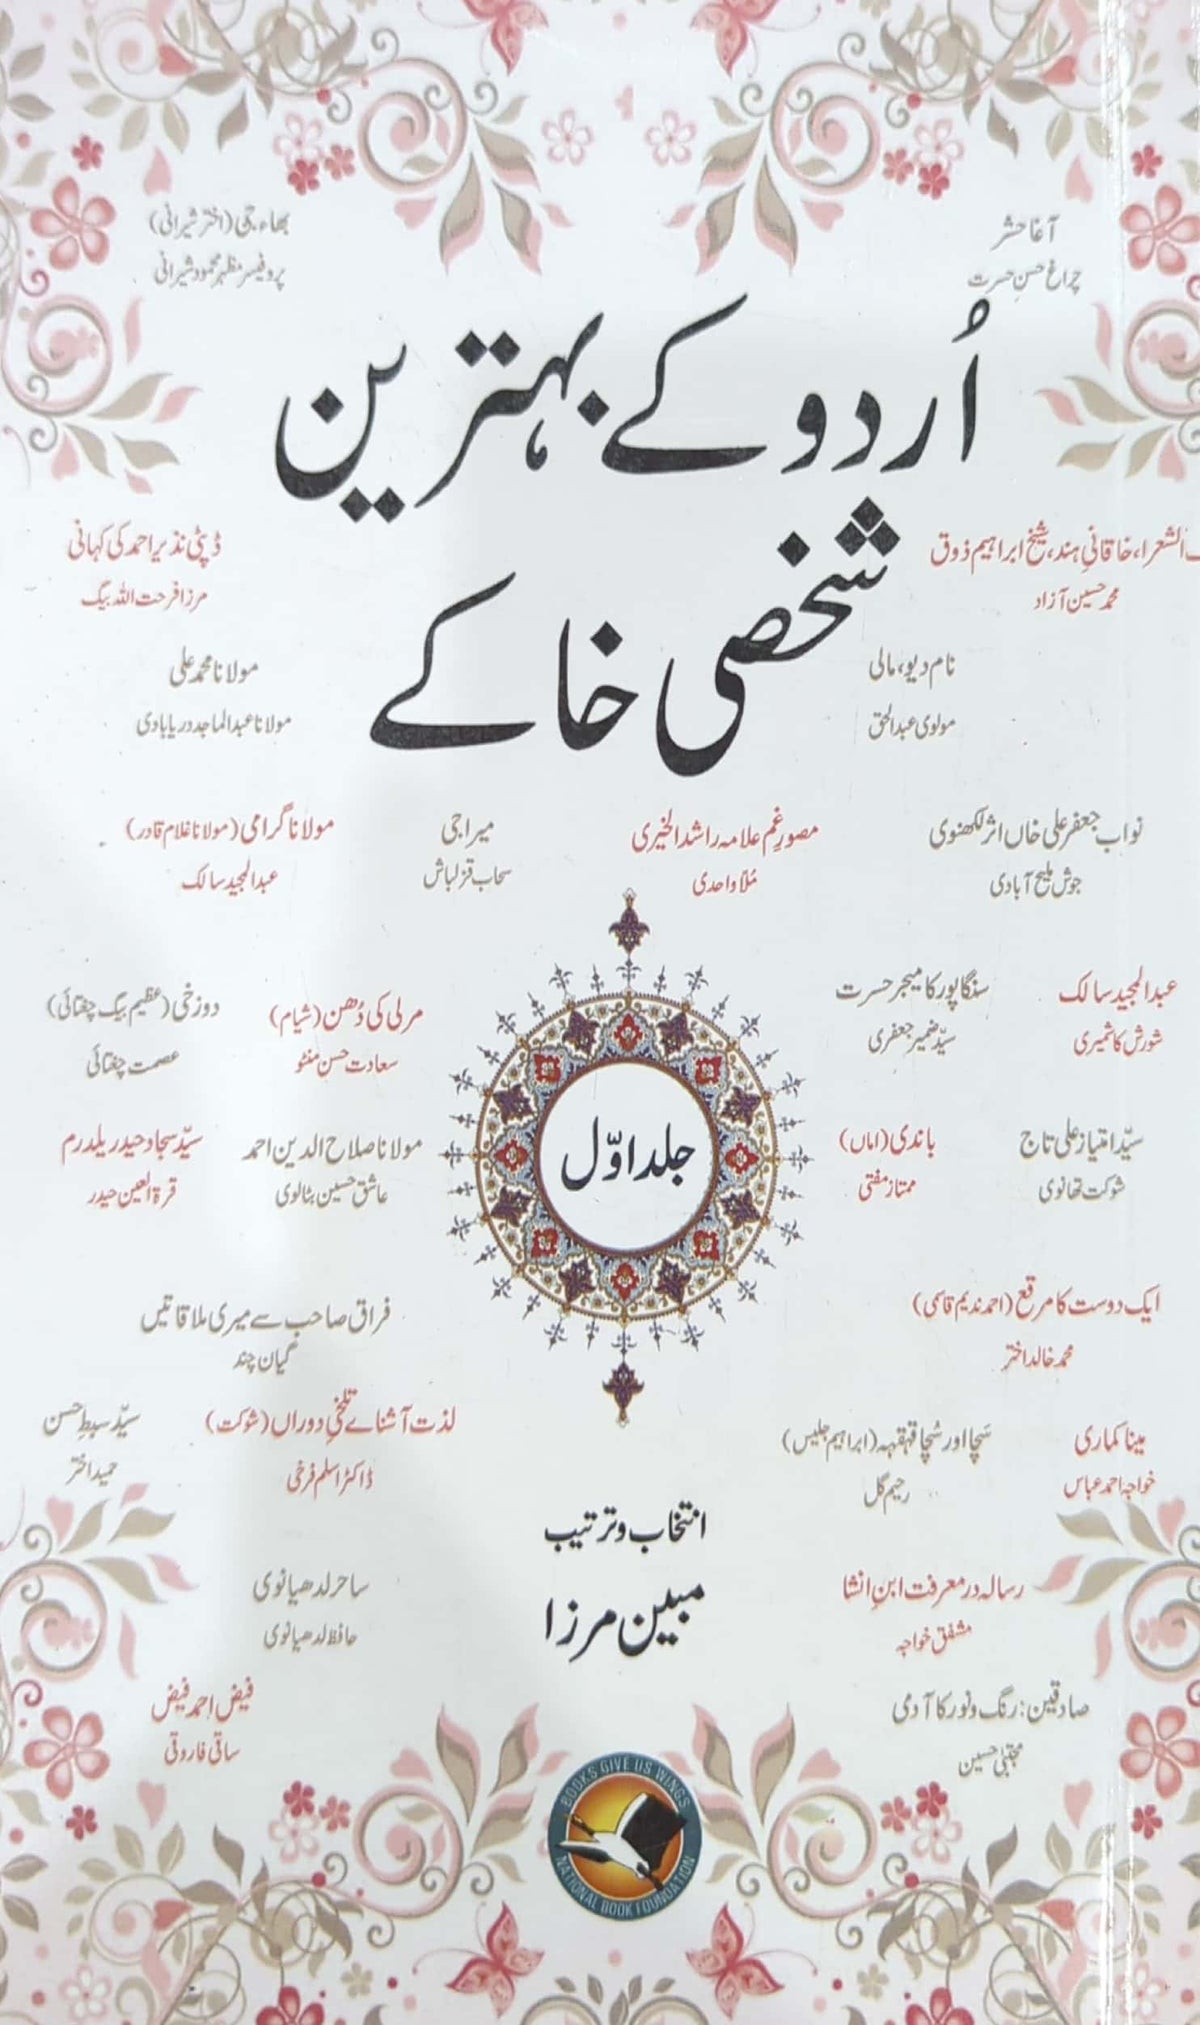 آغا حشر
چراغ حسن حسرت
بھاء جی (اختر شیرانی)
پروفیسر مظہر محمود شیرانی
اُردو کے بہترین
شخصی خاکے
الشعراء، خاقانیِ ہند، شیخ ابراہیم ذوق
محمد حسین آزاد
ڈپٹی نذیر احمد کی کہانی
مرزا فرحت اللہ بیگ
نام دیو، مالی
مولوی عبدالحق
مولانا محمد علی
مولانا عبدالماجد دریابادی
نواب جعفر علی خاں اثر لکھنوی
جوش ملیح آبادی
مصورِ غم علامہ راشد الخیری
مُلا واحدی
میرا جی
سحاب قزلباش
مولانا گرامی (مولانا غلام قادر)
عبدالمجید سالک
عبدالمجید سالک
شورش کاشمیری
سنگاپور کا میجر حسرت
سیّد ضمیر جعفری
مرلی کی دُھن (شیام)
سعادت حسن منٹو
دوزخی (عظیم بیگ چغتائی)
عصمت چغتائی
سیّد امتیاز علی تاج
شوکت تھانوی
باندی (اماں)
ممتاز مفتی
جلد اوّل
مولانا صلاح الدین احمد
عاشق حسین بٹالوی
سیّد سجاد حیدر یلدرم
قرۃ العین حیدر
ایک دوست کا مرقع (احمد ندیم قاسمی)
محمد خالد اختر
فراق صاحب سے میری ملاقاتیں
گیان چند
مینا کماری
خواجہ احمد عباس
سَچا اور سُچا قہقہہ (ابراہیم جلیس)
رحیم گل
لذت آشنائے تلخیِ دوراں (شوکت)
ڈاکٹر اسلم فرخی
سیّد سبطِ حسن
حمید اختر
انتخاب و ترتیب
مبین مرزا
رسالہ در معرفت ابنِ انشا
مشفق خواجہ
ساحر لدھیانوی
حافظ لدھیانوی
صادقین: رنگ و نور کا آدمی
مجتبیٰ حسین
فیض احمد فیض
ساقی فاروقی
BOOKS GIVE US WINGS
NATIONAL BOOK FOUNDATION